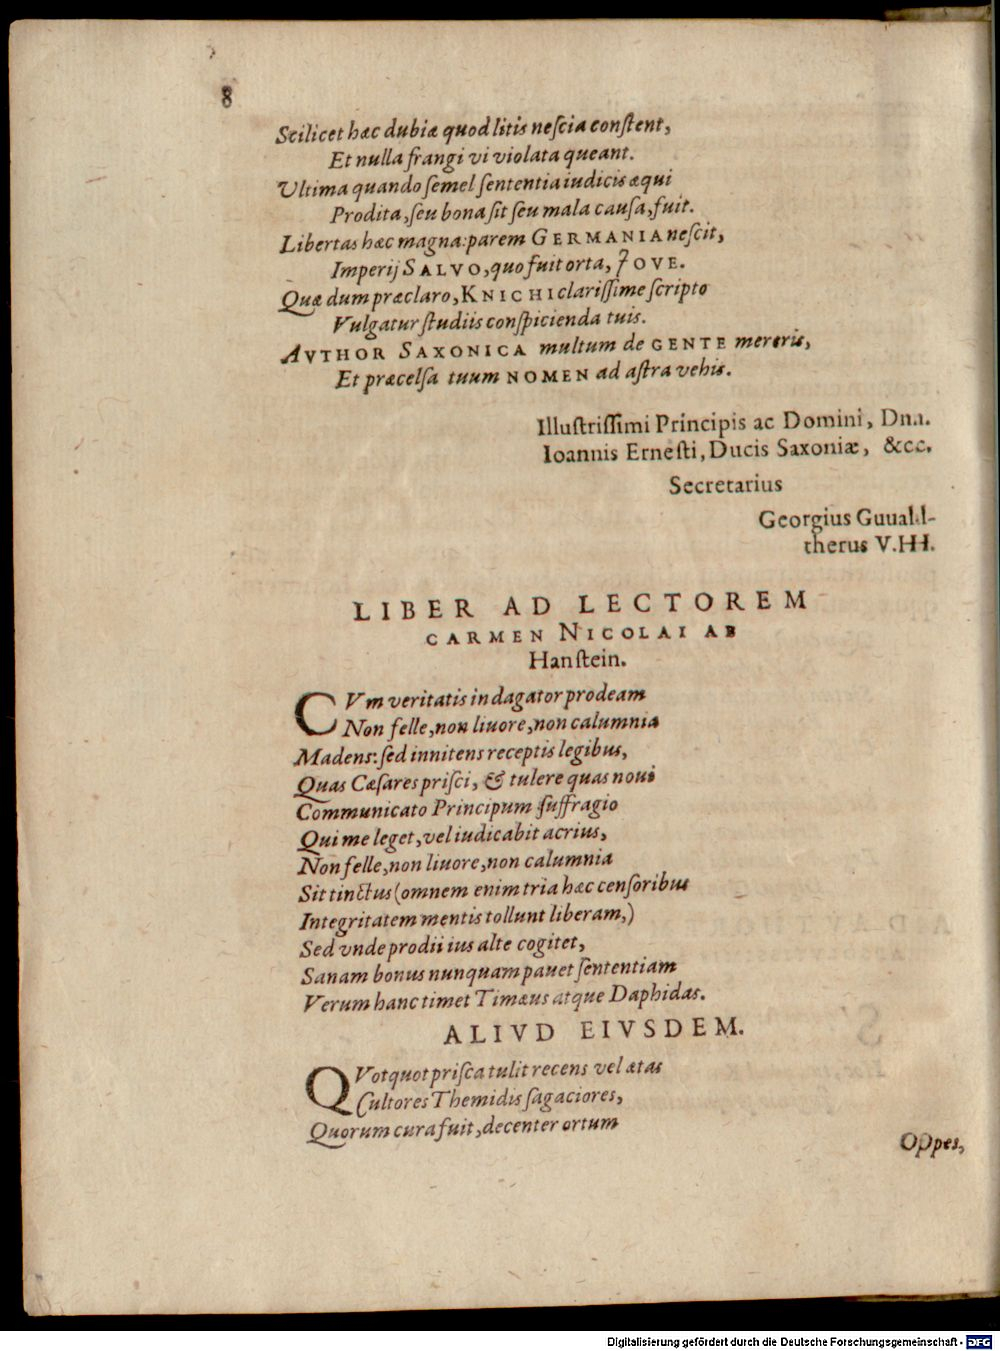 8
Scilicet hæc dubiæ quod litis neſcia conſtent,
Et nulla frangi vi violata queant.
Vltima quando ſemel ſententia iudicis æqui
Prodita, ſeu bona ſit ſeu mala cauſa, fuit.
Libertas hæc magna: parem GERMANIA neſcit,
Imperij SALVO, quo fuit orta, JOVE.
Quæ dum præclaro, KNICHI clariſſime ſcripto
Vulgatur ſtudiis conſpicienda tuis.
AVTHOR SAXONICA multum de GENTE mereris,
Et præcelſa tuum NOMEN ad aſtra vehis.
Illuſtriſſimi Principis ac Domini, Dnn.
Ioannis Erneſti, Ducis Saxoniæ, &cc.
Secretarius
Georgius Guual-
therus V.HH.
LIBER AD LECTOREM
CARMEN NICOLAI AB
Hanſtein.
CVm veritatis indagator prodeam
Non felle, non liuore, non calumnia
Madens: ſed innitens receptis legibus,
Quas Cæſares priſci, & tulere quas noui
Communicato Principum ſuffragio
Qui me leget, vel iudicabit acrius,
Non felle, non liuore, non calumnia
Sit tinctus (omnem enim tria hæc cenſoribus
Integritatem mentis tollunt liberam,)
Sed vnde prodii ius alte cogitet,
Sanam bonus nunquam pauet ſententiam
Verum hanc timet Timæus atque Daphidas.
ALIVD EIVSDEM.
QVotquot priſca tulit recens vel ætas
Cultores Themidis ſagaciores,
Quorum cura fuit, decenter ortum
Oppes,
Digitalisierung gefördert durch die Deutsche Forschungsgemeinschaft - DFG